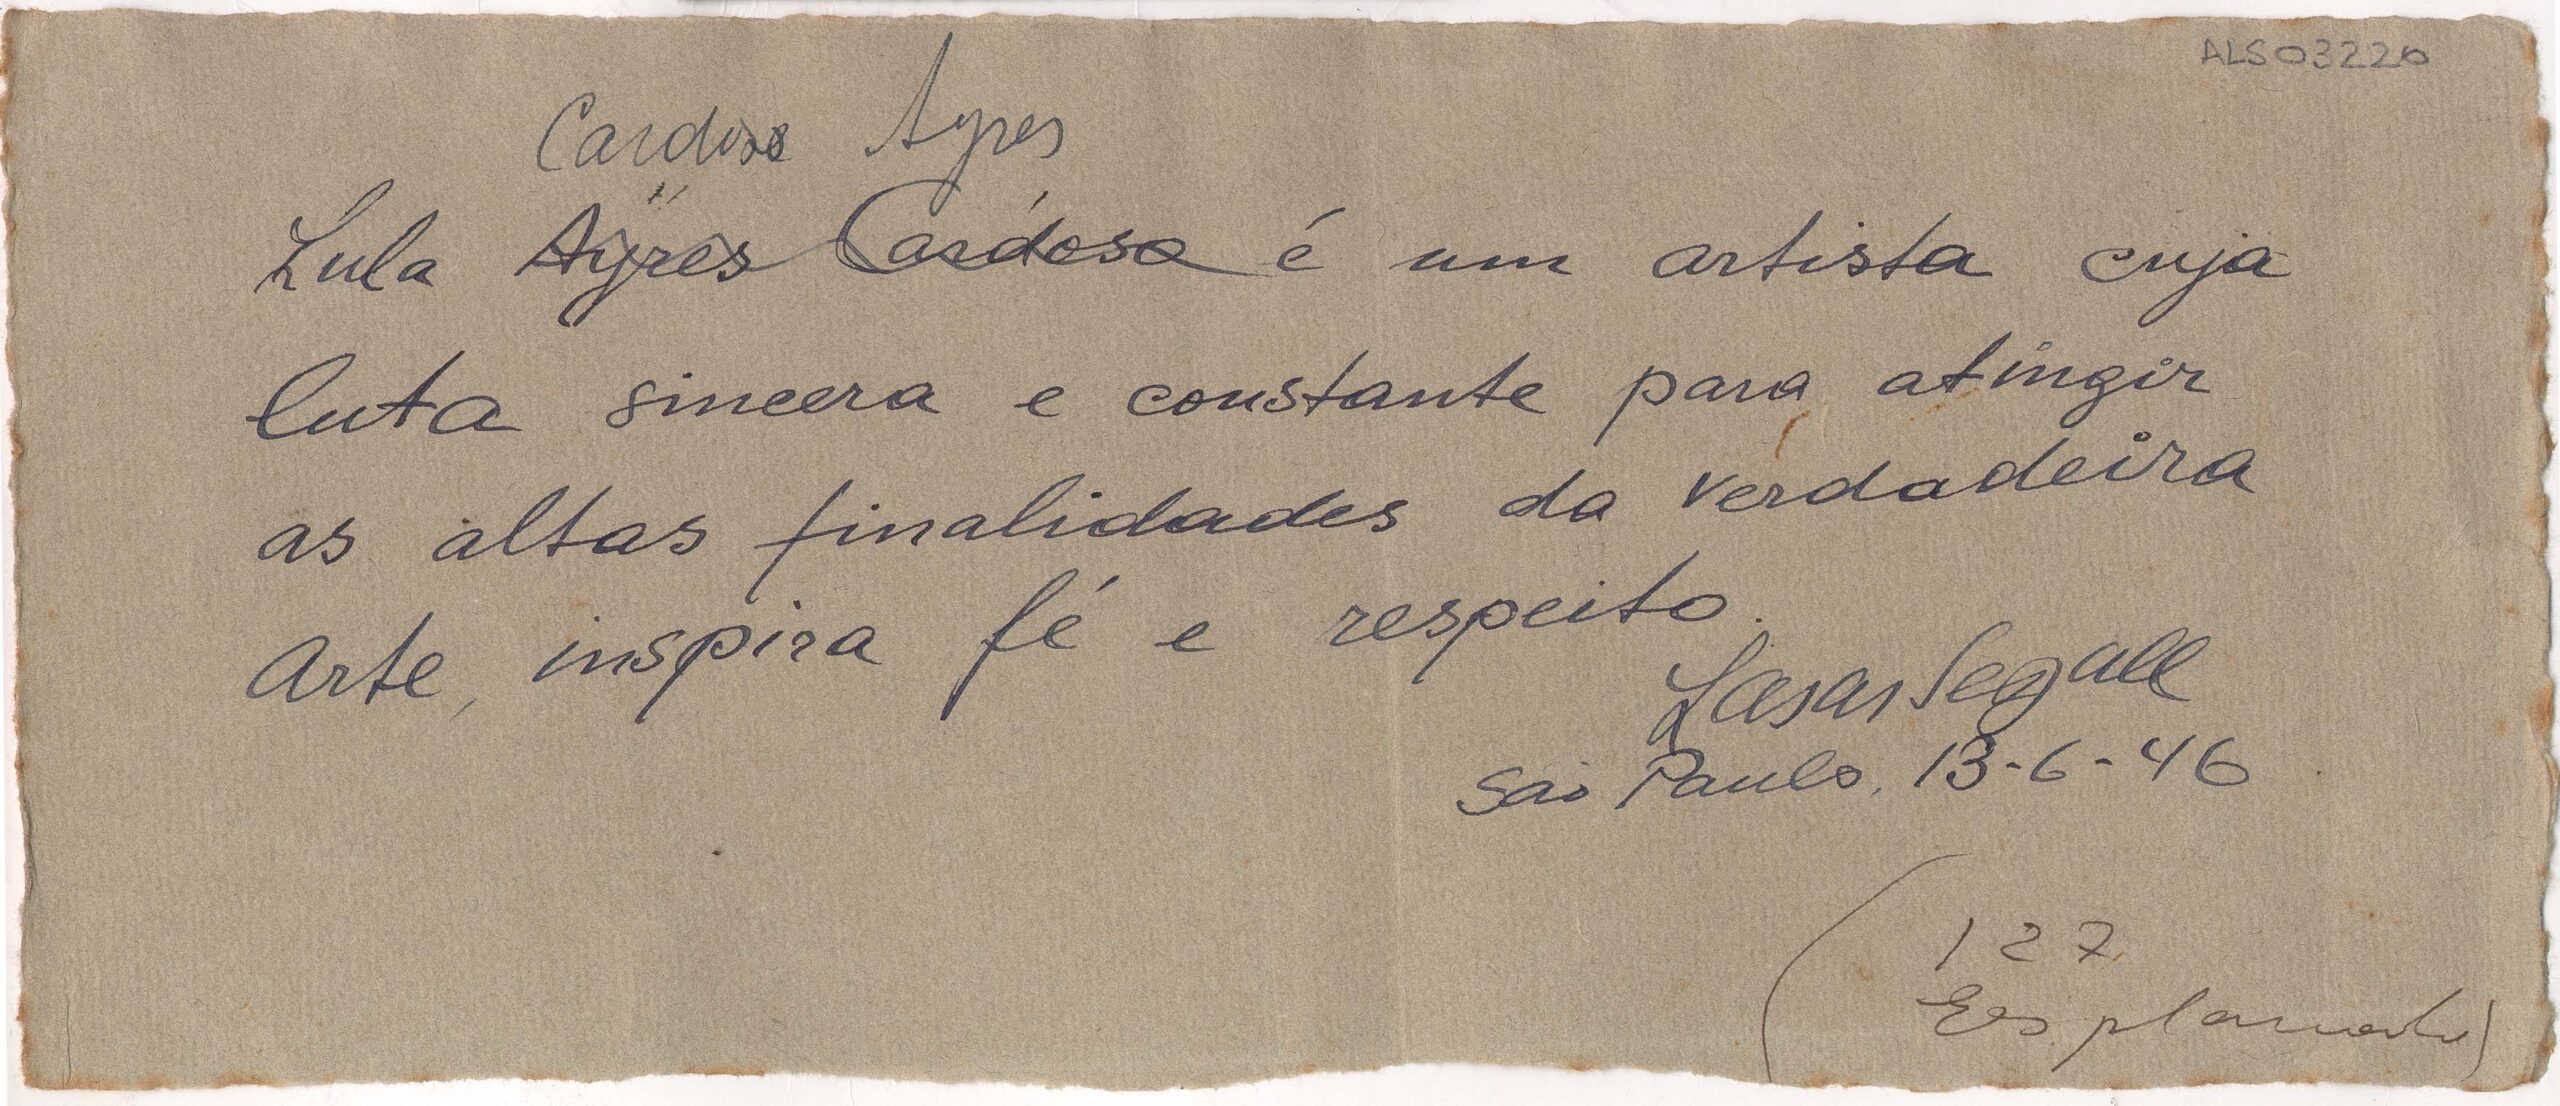 ALS03220
Cardoso Ayres
Lula Ayres Cardoso é um artista cuja
luta sincera e constante para atingir
as altas finalidades da verdadeira
Arte, inspira fé e respeito.
Lasar Segall
São Paulo, 13-6-46
(127
Esplanada)